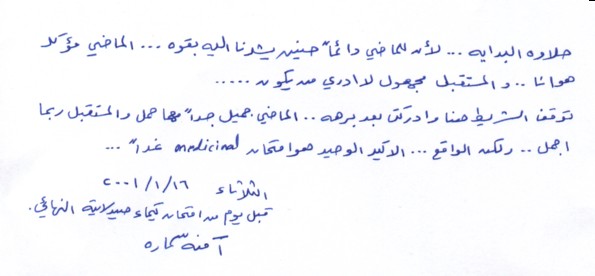 حلاوه البدايه ... لأن للماضي دائماً حنين يشدنا اليه بقوه ... الماضي مؤكد
هوانا .. والمستقبل مجهول لا ادري من يكون .....
توقف الشريط هنا وادركت بعد برهه .. الماضي جميل جداً مهما حمل والمستقبل ربما
اجمل .. ولكن الواقع ... الاكيد الوحيد هو امتحان medicinal غداً ...
الثلاثاء ٢٠٠١/١/١٦
قبل يوم من امتحان كيمياء صيدلانية النهائي.
آمنه سماره